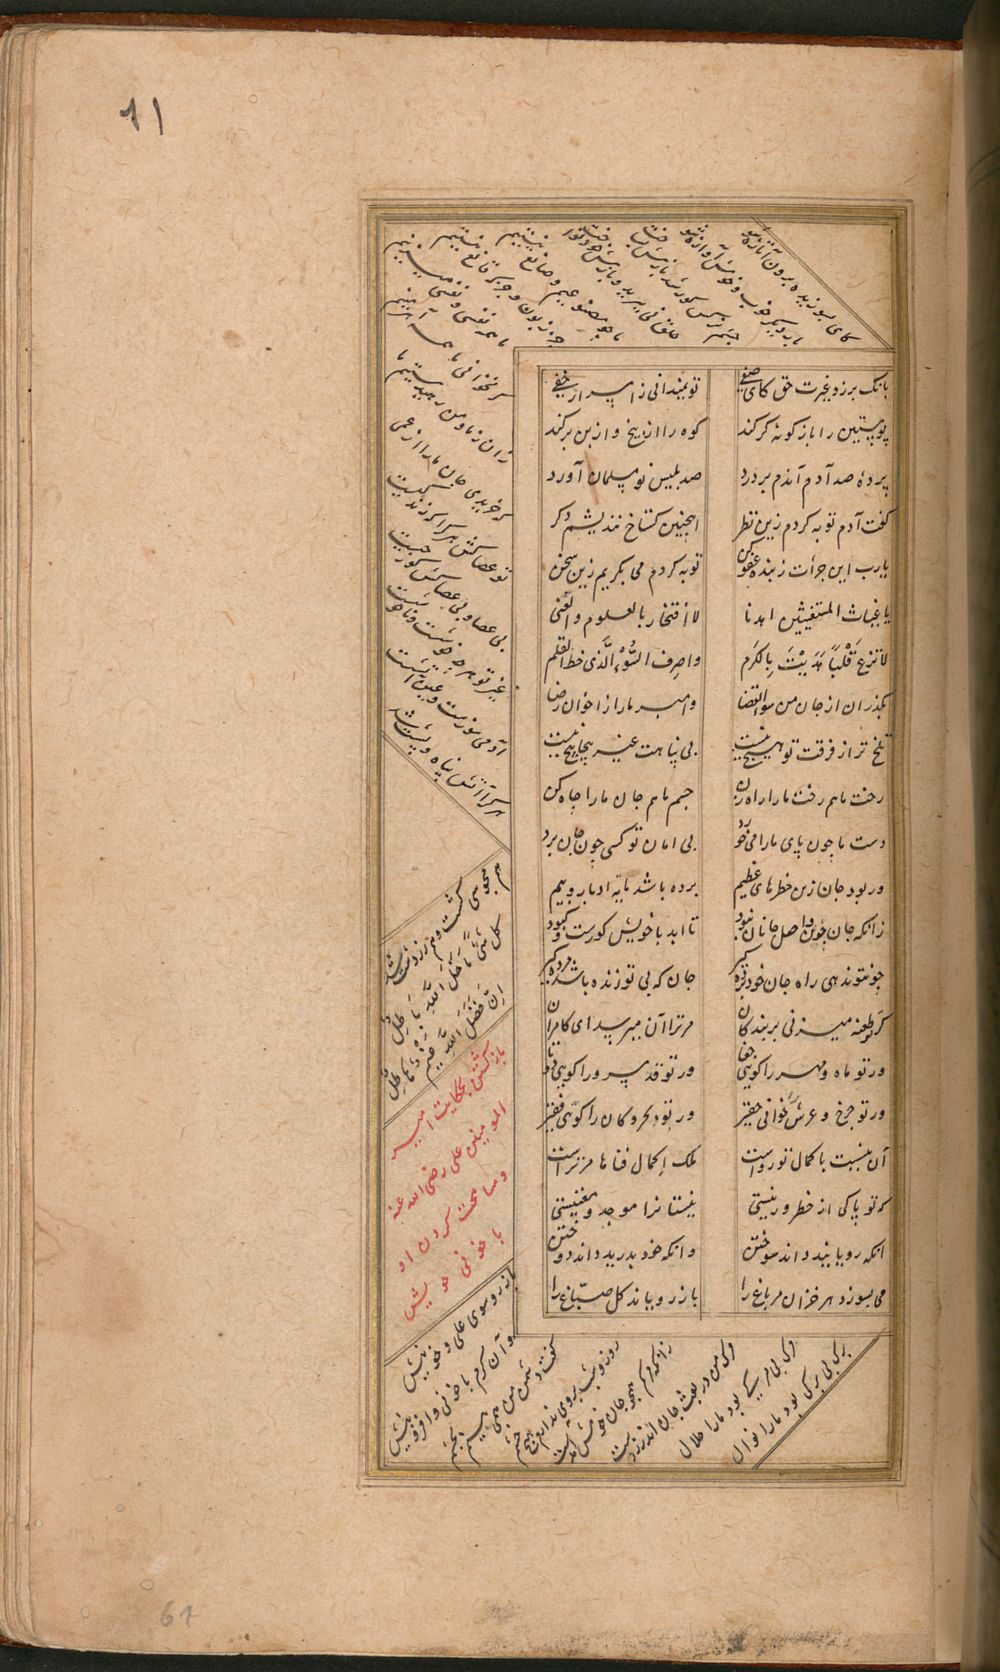 ۶۱
بانک برزد غیرت حق کای صفی
تو نمیدانی ز اسرار خفی
پوستین را بازکونه کر کند
کوه را از بیخ و از بن برکند
پردهٔ صد آدم آندم بردرد
صد بلیس نو مسلمان آورد
کفت آدم توبه کردم زین نظر
اینچنین کستاخ نندیشم دکر
یارب این جرأت ز بنده عفو کن
توبه کردم می نکیرم زین سخن
یا غیاث المستغیثین اهدنا
لا افتخار بالعلوم والغنی
لا تزغ قلباً هدیت بالکرم
واصرف السوء الذی خط القلم
بکذران از جان من سوء القضا
وامبر مارا ز اخوان رضا
تلخ تر از فرقت تو هیچ نیست
بی پناهت غیر پیچاپیچ نیست
رخت ما هم رخت مارا راه زن
جسم ما هم جان مارا جامه کن
دست ما چون پای مارا می خورد
بی امان تو کسی چون جان برد
ور برد جان زین خطرهای عظیم
برده باشد مایه ادبار و بیم
زانکه جان چون واصل جانان نبود
تا ابد با خویش کورست و کبود
چون تو ندهی راه جان خود برده کیر
جان که بی تو زنده باشد مرده کیر
کر تو طعنه میزنی بر بندکان
مر ترا آن میرسد ای کامران
ور تو ماه و مهر را کویی جفا
ور تو قد سرو را کویی دوتا
ور تو چرخ و عرش را خوانی حقیر
ور تو بحر و کان را کویی فقیر
آن نسبت با کمال تو رواست
ملک اکمال فناها مر تراست
که تو پاکی از خطر وز نیستی
نیستانرا موجد و مغنیستی
آنکه رویانید داند سوختن
وآنکه خود بدرید داند دوختن
می بسوزد هر خزان مر باغ را
باز رویاند کل صباغ را
کای بسوزیده برون آ تازه شو
بار دیکر خوب و خوش آوازه شو
چشم نرکس کور شد بازش بساخت
حلق نی ببرید و بازش خود نواخت
ما چو مصنوعیم و صانع نیستیم
جز زبون و جز که قانع نیستیم
ما همه نفسی و نفسی میزنیم
کر نخوانی ما همه آهرمنیم
زان ز اهرمن رهیدستیم ما
که خریدی جان مارا از عمی
تو عصاکش هر کرا که زندکیست
بی عصا و بی عصاکش کور چیست
غیر تو هر چه خوشست و ناخوشست
آدمی سوزست و عین آتشست
هر کرا آتش پناه و پشت شد
هم مجوسی کشت و هم زردشت شد
کل شیء ما خلا الله باطل
ان فضل الله غیم هاطل
باز کشتن بحکایت امیر
المومنین علی رضی الله عنه
ومسامحت کردن او
با خونی خویش
باز رو سوی علی و خونیش
وآن کرم با خونی و افزونیش
کفت دشمن من همی بینم بچشم
روز و شب بروی ندارم هیچ خشم
زانکه مرکم همچو جان خوش آمدست
مرک من در بعث جان اندر زدست
مرک بی مرکی بود مارا حلال
برک بی برکی بود مارا نوال
61